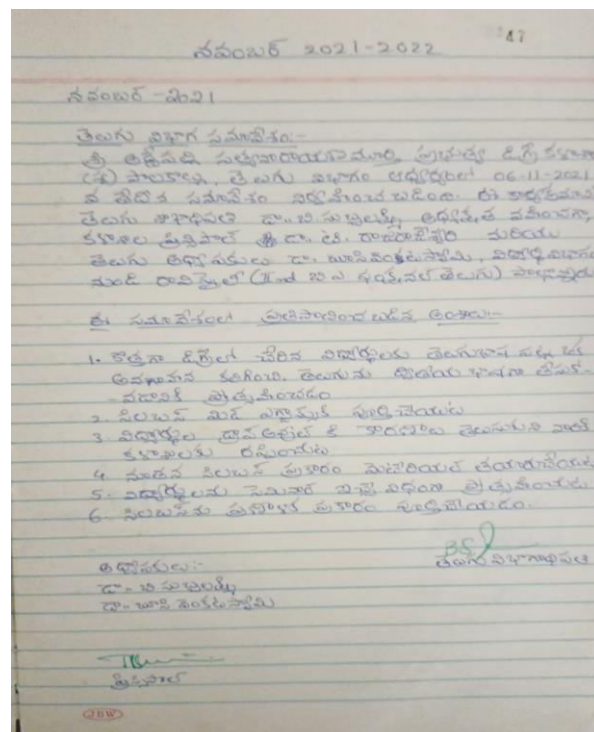 47
నవంబర్ 2021-2022
నవంబర్ - 2021
తెలుగు విభాగ సమావేశం:-
శ్రీ సత్యనారాయణమూర్తి ప్రభుత్వ డిగ్రీ కళాశాల
పాలకొల్లు, తెలుగు విభాగం ఆధ్వర్యంలో 06-11-2021
వ తేదీన సమావేశం నిర్వహించబడింది. ఈ కార్యక్రమానికి
తెలుగు శాఖాధిపతి డా. బి. సుబ్బలక్ష్మి అధ్యక్షత వహించగా,
కళాశాల ప్రిన్సిపాల్ డా. టి. రాజరాజేశ్వరి మరియు
తెలుగు అధ్యాపకులు డా. బూసి వెంకటస్వామి, విద్యార్థి విభాగం
నుండి (IInd బి.ఎ తెలుగు) పాల్గొన్నారు
ఈ సమావేశంలో ప్రతిపాదించబడిన అంశాలు:-
1. కొత్తగా డిగ్రీలో చేరిన విద్యార్థులకు తెలుగుభాష పట్ల ఒక
అవగాహన కలిగించి, తెలుగును ద్వితీయ భాషగా తీసుకో-
-వడానికి ప్రోత్సహించడం
2. సిలబస్ మిడ్ ఎగ్జామ్స్ కి పూర్తిచేయుట
3. విద్యార్థుల డ్రాప్ అవుట్ కి కారణాలు తెలుసుకుని వారిని
కళాశాలకు రప్పించుట
4 నూతన సిలబస్ ప్రకారం మెటీరియల్ తయారుచేయుట
5. విద్యార్థులను సెమినార్ ఇచ్చే విధంగా ప్రోత్సహించుట
6. సిలబస్ ను ప్రణాళిక ప్రకారం పూర్తిచేయడం.
తెలుగు విభాగాధిపతి
అధ్యాపకులు:-
డా. బి సుబ్బలక్ష్మి
డా. బూసి వెంకటస్వామి
ప్రిన్సిపాల్